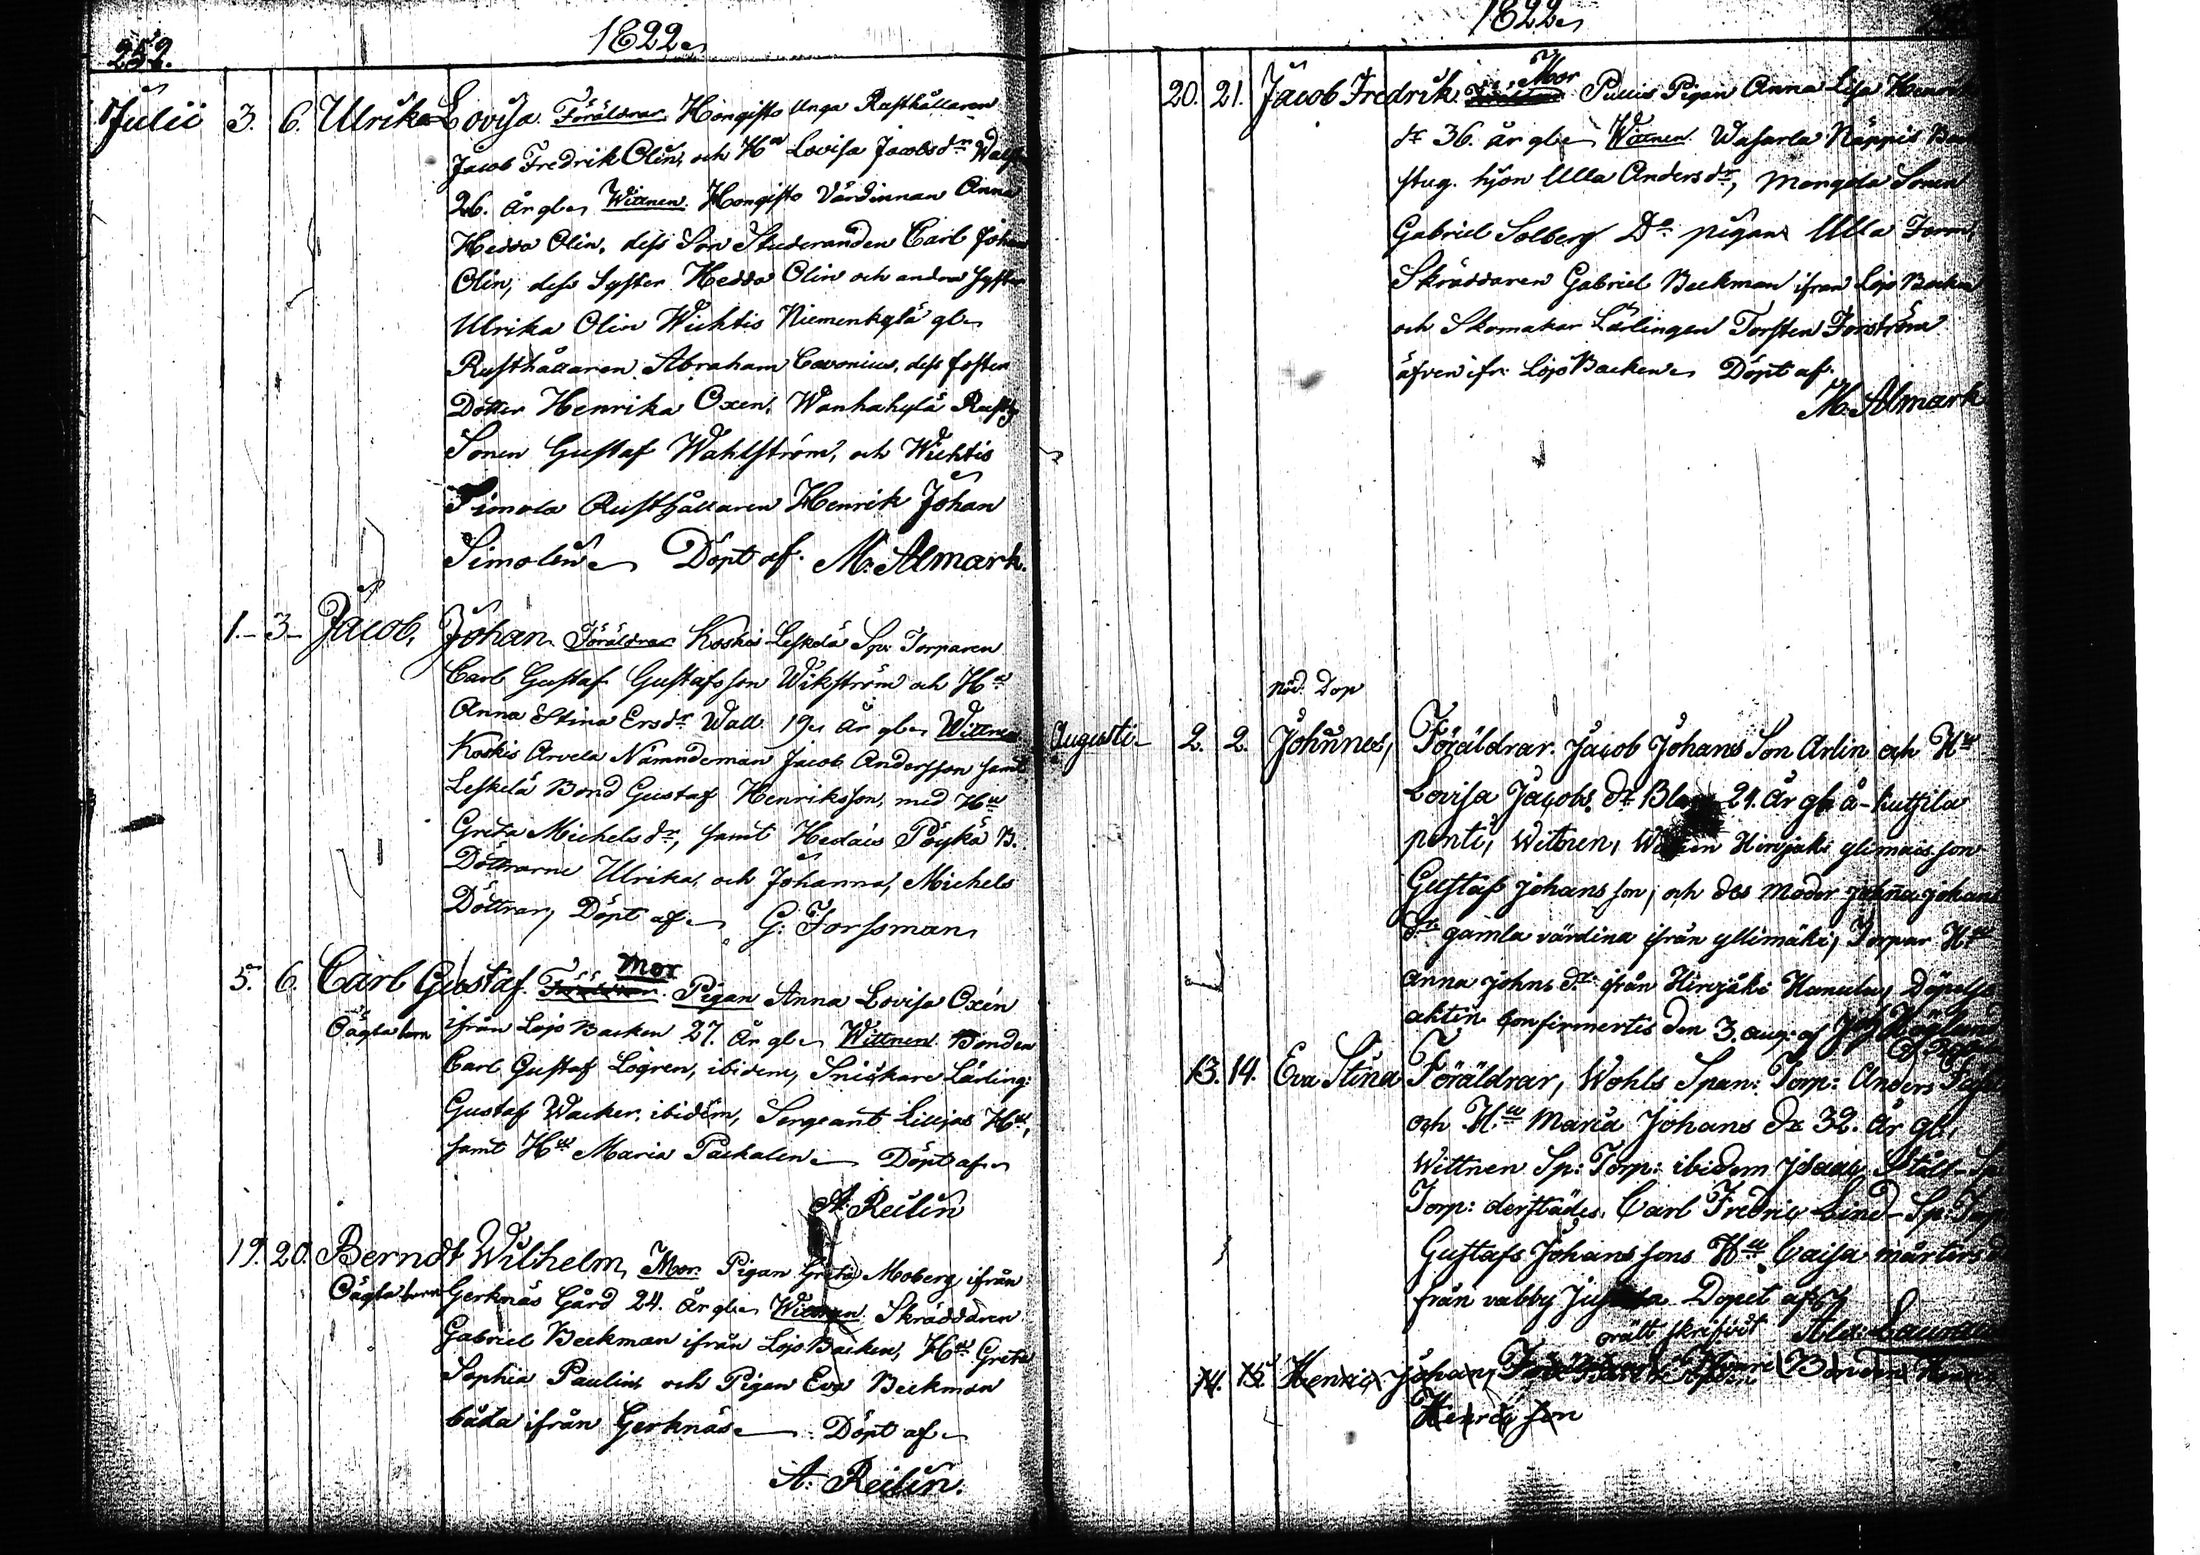 252.
1822
Julii 3. 6. Ulrika Lovisa. Föräldrar Hongisto Unga Rusthållaren
Jacob Fredrik Olin, och Hu Lovisa Jacobsdr
26. år gl. Wittnen. Hongisto Värdinnan Anna
Hedda Olin, dess Son Studeranden Carl Johan
Olin, dess Syster Hedda Olin och andra Syster
Ulrika Olin Wichtis Niemenkylä gl.
Rusthållaren Abraham Cavonius, dess foster
Dotter Henrika Oxen, Wanhakylä Rusth
Sonen Gustaf Wahlström, och Wichtis
Simola Rusthållaren Henrik Johan
Simolin Döpt af M. Almark.
1. 3. Jacob Johan. Föräldrar Koskis Leskelä Sp: Torparen
Carl Gustaf Gustafsson Wikström och Hu
Anna Stina Ersdr Wall 19 år gl. Wittnen
Koskis Arvela Nämndeman Jacob Andersson samt
Leskelä Bond Gustaf Henriksson, med Hu
Greta Michelsdr, samt Hedais Pöykä B.
Döttrarne Ulrika, och Johanna, Michels
Döttrar, Döpt af G. Forssman
Mor
5. 6. Carl Gustaf. Föräldrar. Pigan Anna Lovisa Oxén
Oägta barn ifrån Lojo Backen 27. år gl. Wittnen Bonden
Carl Gustaf Lögren, ibidem, Snickare Lärling:
Gustaf Wacker, ibidem, Sergeant Lilljas Hu,
samt Hu Maria Packalen Döpt af
A. Reilin
19. 20. Berndt Wilhelm, Mor Pigan Greta Moberg ifrån
Oägta barn Gerknäs Gård 24. år gl. Wittnen Skräddaren
Gabriel Beckman ifrån Lojo Backen, Hu Greta
Sophia Paulin och Pigan Eva Beckman
båda ifrån Gerknäs Döpt af
A. Reilin.
1822
Mor
20. 21. Jacob Fredrik. Föräldrar Pullis Pigan Anna Lisa Henriks
dr 36. år gl. Wittnen. Wasarla Näppis
stug. hjon Ulla Andersdr, Mongola Sonen
Gabriel Solberg Do pigan Ulla
Skräddaren Gabriel Beckman ifrån Lojo Backen
och Skomakar Lärlingen Torsten Forström
äfven ifr. Lojo Backen Döpt af
M. Almark
Nöd. Dop
Augusti 2. 2. Johnnes, Föräldrar. Jacob Johans Son Arlin och Hu
Lovisa Jacobs dr 24. år gl. å Kutsila
ponti, Wittnen, Hirvjoki ylimäis son
Gustaf Johans son, och des moder Johna Johans
dr gamla värdina ifrån yllimäki, Torpar Hu
Anna Johns dr ifrån Hirvjoki Hanula, Döpelse
akten confirmertis den 3. aug. af
13. 14. Eva Stina Föräldrar, Wohls Span: Torp: Anders
och Hu Maria Johans dr 32. år gl.
Wittnen Sp: Torp: ibidem Isaac Ståll Sp:
Torp: derstädes Carl Fredric Lind Sp: Torp
Gustafs Johanssons Hu Caisa mårtens
från vabby Döpet af
orätt skrifvit Alex:
14. 15. Henric Johan, Föräldrar Bonden
Henric son